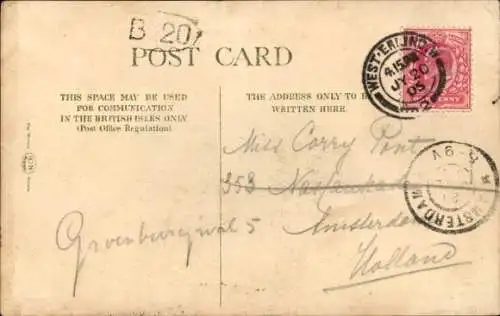 B 20
POST CARD
THIS SPACE MAY BE USED
FOR COMMUNICATION
IN THE BRITISH ISLES ONLY
(Post Office Regulation)
THE ADDRESS ONLY TO BE
WRITTEN HERE.
WEST-
4.15 PM
JY 20
05
AMSTERDAM
8-9V
Miss Corry Pont
353
Amsterdam
Holland
Groenburgwal 5